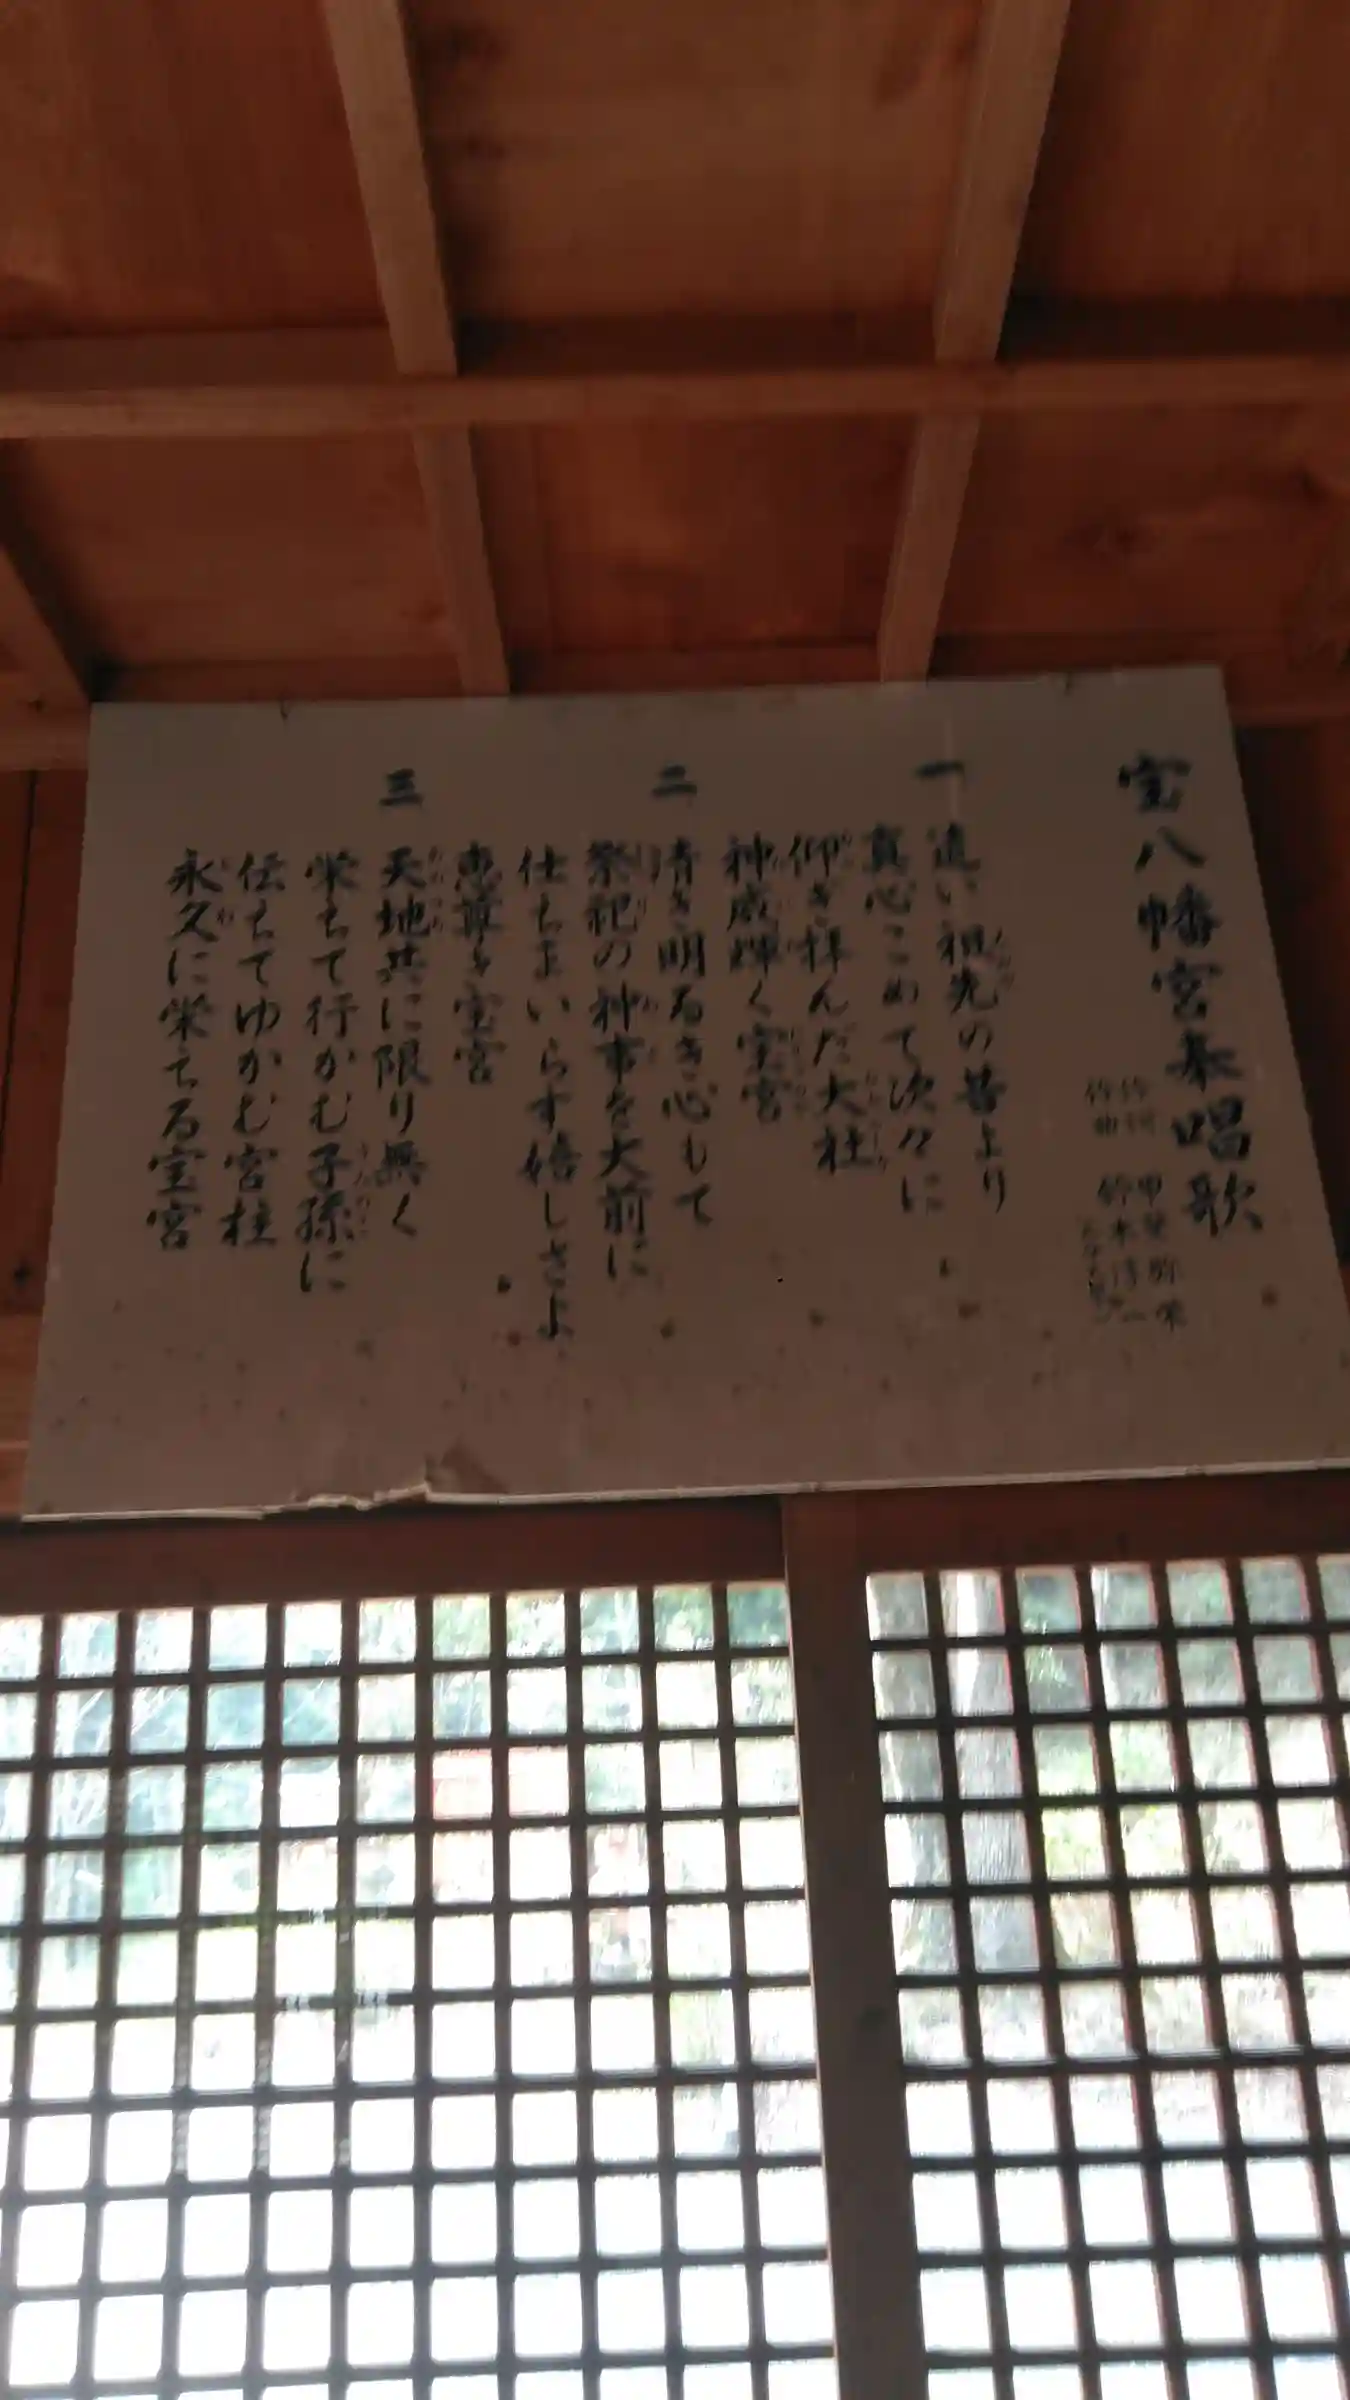 宝八幡宮奉唱歌
作詞 甲斐 弥栄
作曲
一
遠い祖先の昔より
真心こめて次々に
仰ぎ拝んだ大社
神威輝く宝宮
二
清き明るき心もて
祭祀の神事を大前に
仕ちまいらす嬉しさよ
恵尊き宝宮
三
天地共に限り無く
栄ちて行かむ子孫に
伝ちてゆかむ宮柱
永久に栄ちる宝宮